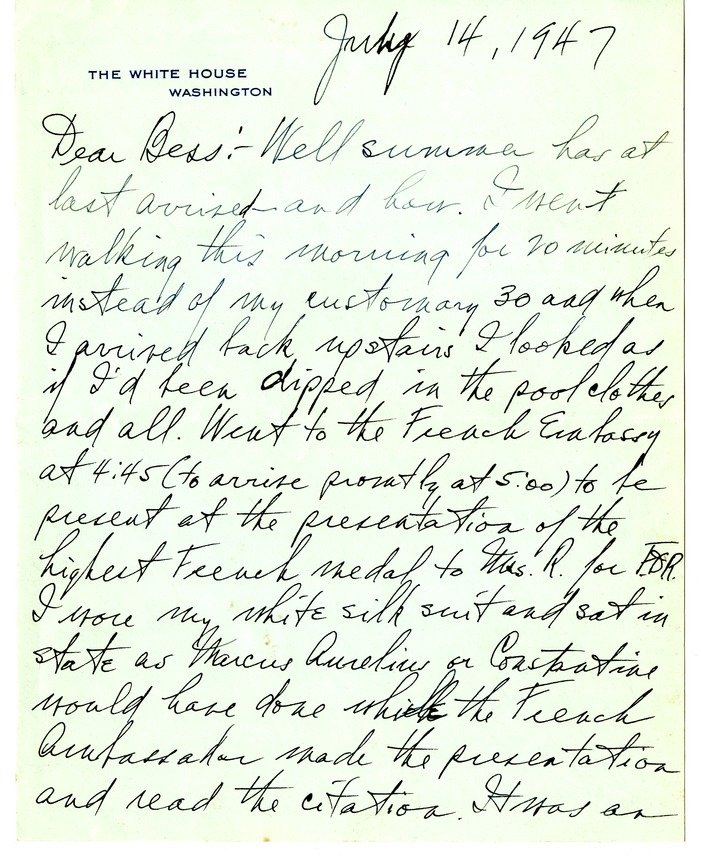 July 14, 1947
THE WHITE HOUSE
WASHINGTON
Dear Bess:- Well summer has at
last arrived and how. I went
walking this morning for 20 minutes
instead of my customary 30 and when
I arrived back upstairs I looked as
if I'd been dipped in the pool clothes
and all. Went to the French Embassy
at 4:45 (to arrive promtly at 5:00) to be
present at the presentation of the
highest French medal to Mrs. R. for FDR.
I wore my white silk suit and sat in
state as Marcus Aurelius or Constantine
would have done while the French
Ambassador made the presentation
and read the citation. It was an